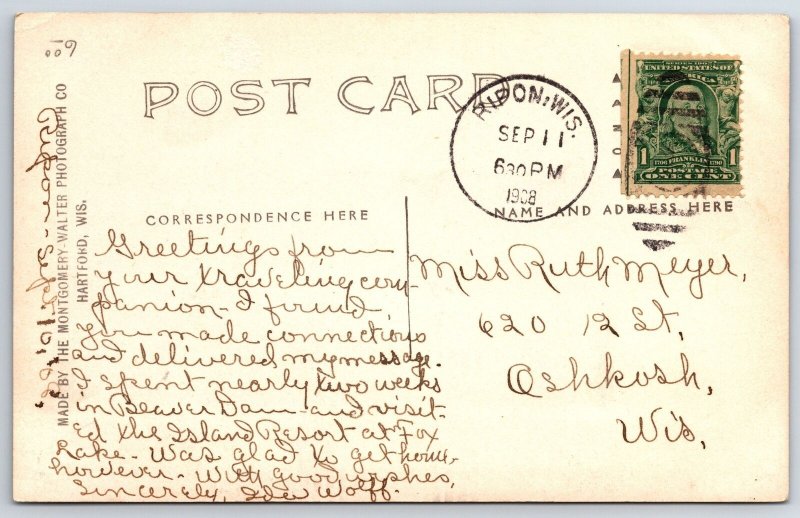 600
POST CARD
RIPON, WIS.
SEP 11
630 PM
1908
SERIES 1902
UNITED STATES OF
AMERICA
1 1
1706 FRANKLIN 1790
POSTAGE
ONE CENT
MADE BY THE MONTGOMERY-WALTER PHOTOGRAPH CO
HARTFORD, WIS.
CORRESPONDENCE HERE
NAME AND ADDRESS HERE
Greetings from
your traveling com-
panion. I found
you made connections
and delivered my message.
I spent nearly two weeks
in Beaver Dam and visit-
ed the Island Resort at Fox
Lake. Was glad to get home,
however. With good wishes,
Sincerely, Ida Wolff.
Miss Ruth Meyer,
620 12 St,
Oshkosh,
Wis,